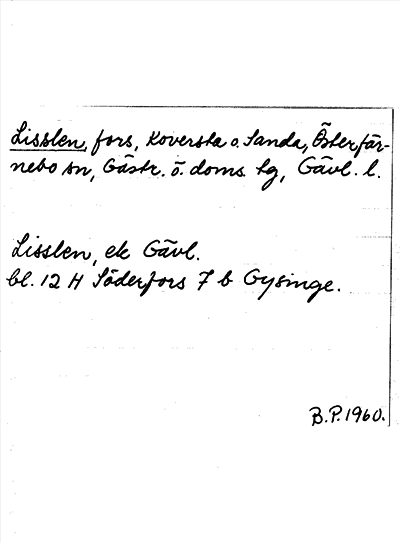 Lisslen, fors, Koversta o. Sanda, Österfär-
nebo sn, Gästr. ö. doms. tg, Gävl. l.
Lisslen, ek Gävl.
bl. 12 H Söderfors 7 b Gysinge.
B.P. 1960.